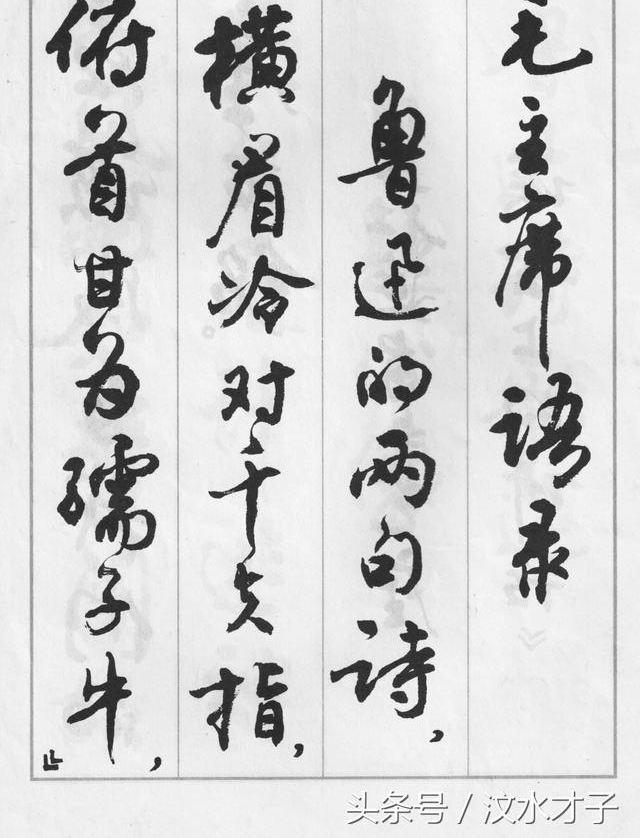 毛主席语录
鲁迅的两句诗，
横眉冷对千夫指，
俯首甘为孺子牛』，
头条号 / 汶水才子